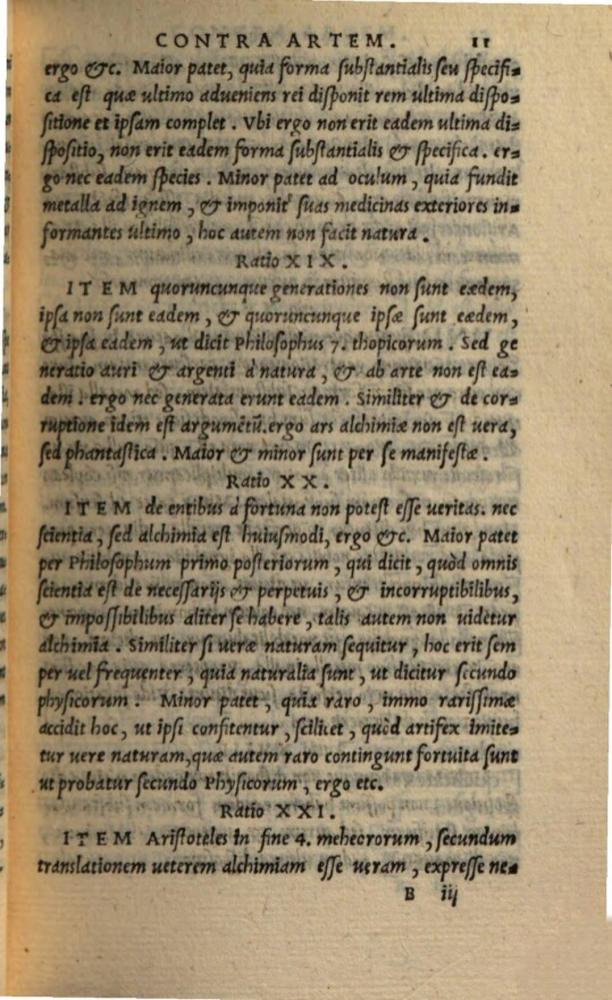 CONTRA ARTEM. 11
ergo &c. Maior patet, quia forma substantialis seu specifi-
ca est quæ ultimo adueniens rei disponit rem ultima dispo-
sitione et ipsam complet. Vbi ergo non erit eadem ultima di-
spositio, non erit eadem forma substantialis & specifica. er-
go nec eadem species. Minor patet ad oculum, quia fundit
metalla ad ignem, & imponit suas medicinas exteriores in-
formantes ultimo, hoc autem non facit natura.
Ratio XIX.
ITEM quoruncunque generationes non sunt eædem,
ipsa non sunt eadem, & quoruncunque ipsæ sunt eædem,
& ipsa eadem, ut dicit Philosophus 7. thopicorum. Sed ge
neratio auri & argenti à natura, & ab arte non est ea-
dem. ergo nec generata erunt eadem. Similiter & de cor-
ruptione idem est argumētū. ergo ars alchimiæ non est uera,
sed phantastica. Maior & minor sunt per se manifestæ.
Ratio XX.
ITEM de entibus à fortuna non potest esse ueritas. nec
scientia, sed alchimia est huiusmodi, ergo &c. Maior patet
per Philosophum primo posteriorum, qui dicit, quòd omnis
scientia est de necessarijs & perpetuis, & incorruptibilibus,
& impossibilibus aliter se habere, talis autem non uidetur
alchimia. Similiter si uere naturam sequitur, hoc erit sem
per uel frequenter, quia naturalia sunt, ut dicitur secundo
physicorum. Minor patet, quia raro, immo rarissime
accidit hoc, ut ipsi confitentur, scilicet, quòd artifex imite-
tur uere naturam, quæ autem raro contingunt fortuita sunt
ut probatur secundo Physicorum, ergo etc.
Ratio XXI.
ITEM Aristoteles in fine 4. mehecrorum, secundum
translationem ueterem alchimiam esse ueram, expresse ne-
B iij